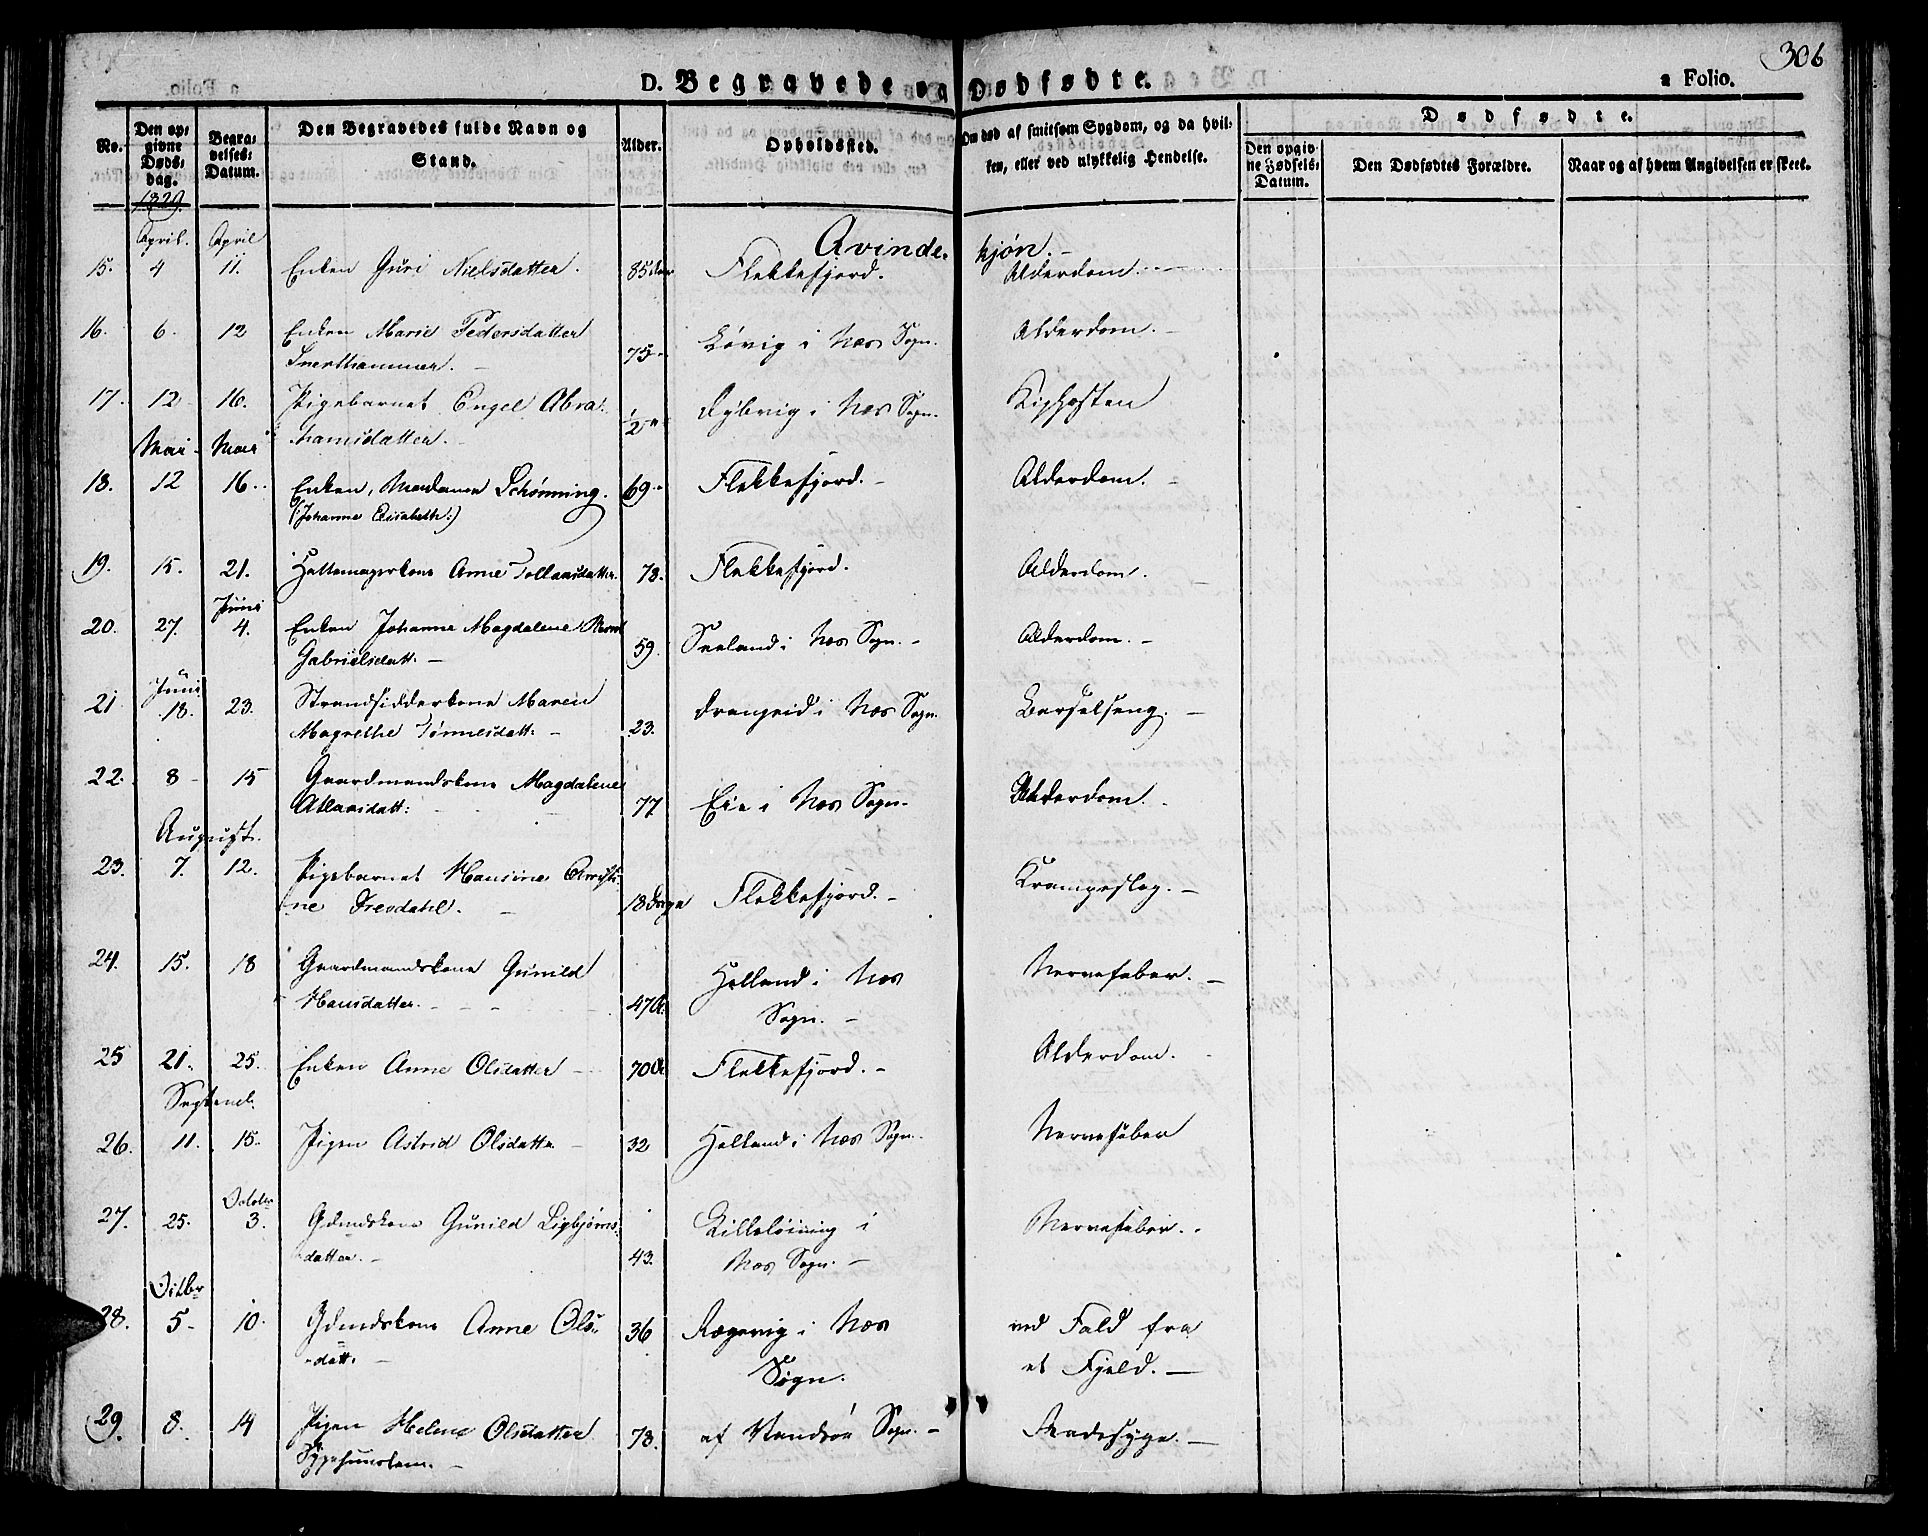 306
D. Begravede og Dødfødte. a Folio.
No. Den opgivne Dødsdag. Begravelses-Datum. Den Begravedes fulde Navn og Stand. Alder. Opholdssted. Om død af smitsom Sygdom, og da hvilken, eller ved ulykkelig Hendelse. Dødfødte.
Den opgivne Fødsels-Datum. Den Dødfødtes Forældre. Naar og af hvem Angivelsen er skeet.
1829.
Qvinde- kjøn.
April. April
15. 4 11. Enken Guri Nielsdatter. 85 Flekkefjord. Alderdom.
16. 6. 12 Enken Marie Pedersdatter
75 Løvig i Næs Sogn. Alderdom.
17. 12 16. Pigebarnet Engel Abra-
hamsdatter. 1/2 i Næs Sogn. Kighosten
Mai Mai
18. 12 16. Enken, Madame Schønning. 69 Flekkefjord. Alderdom.
(Johanne Elisabeth:)
19. 15. 21. Hattemagerkone Anne Tollaksdatter. 78. Flekkefjord. Alderdom.
Juni
20. 27. 4. Enken Johanne Magdalene
Gabrielsdatt: 59. Seeland i Næs Sogn. Alderdom.
Juni
21 18. 23. Strandsidderkone Maren
Magrethe Tønnesdatt: 23. Drangeid i Næs Sogn. Barselseng.
22. 8 15 Gaardmandskone Magdalene
Atlaksdatt: 77 Eie i Næs Sogn. Alderdom.
August.
23. 7. 12. Pigebarnet Hansine Christi-
ne Tresdahl. 18 Dage Flekkefjord. Krampeslag.
24. 15. 18 Gaardmandskone Gunild
Hansdatter. 47 A. Helland i Næs
Sogn. Nervefeber.
25 21. 25. Enken Anne Olsdatter 70 A. Flekkefjord. Alderdom.
Septemb.
26. 11. 15. Pigen Astrid Olsdatter 32 Helland i Næs Sogn. Nervefeber
October
27. 25. 3. Gdmdskone Gunild Sigbjørns-
datter. 43. Lilleløining i
Næs Sogn. Nervefeber.
Octbr
28. 5 10. Gdmdskone Anne Ols-
datt: 36 Rægevig i Næs
Sogn. ved Fald fra
et Fjeld.
29. 8. 14 Pigen Helene Olsdatter
78. af Vandsøe Sogn.